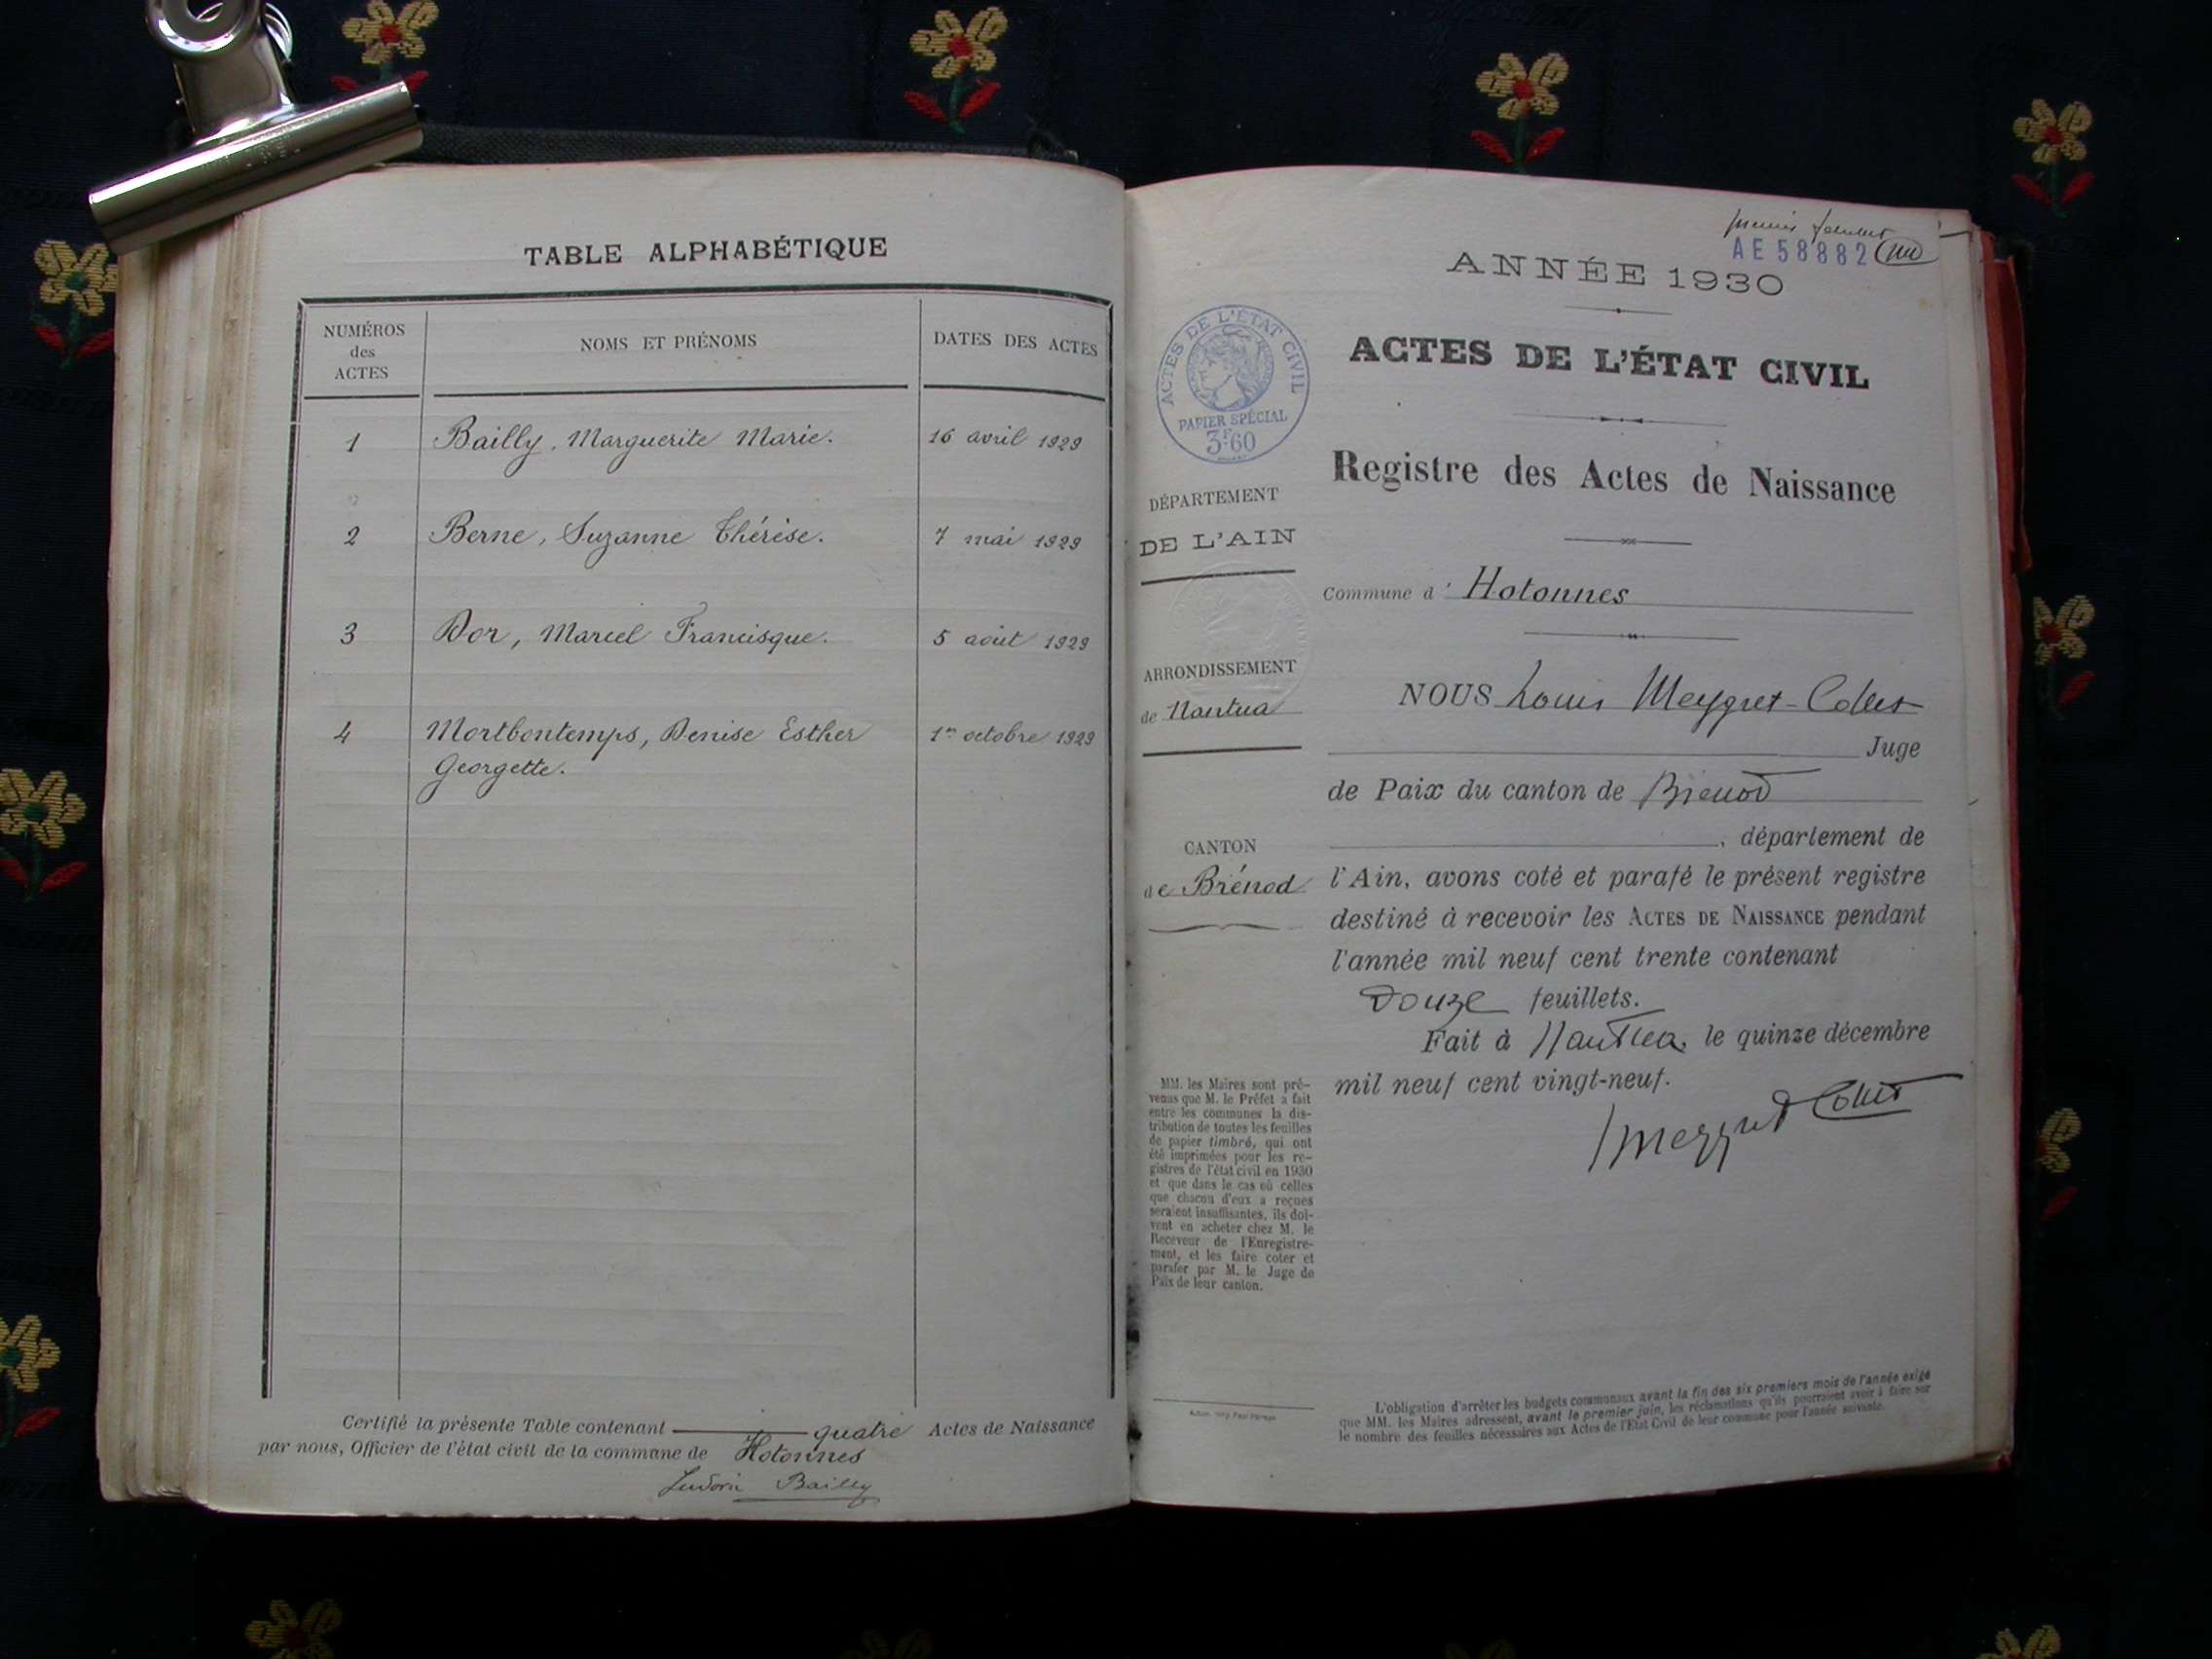 TABLE ALPHABÉTIQUE
NUMÉROS des ACTES
NOMS ET PRÉNOMS
DATES DES ACTES
1 Bailly, Marguerite Marie. 16 avril 1929
2 Berne, Suzanne Thérèse. 7 mai 1929
3 Dor, Marcel Francisque. 5 août 1929
4 Mortbontemps, Denise Esther 1er octobre 1929
Georgette.
Certifié la présente Table contenant quatre Actes de Naissance
par nous, Officier de l'état civil de la commune de Hotonnes
Ludovic Bailly
premier feuillet
AE 58882
ANNÉE 1930
ACTES DE L'ÉTAT CIVIL
ACTES DE L'ÉTAT CIVIL
PAPIER SPÉCIAL
3F.60
Registre des Actes de Naissance
DÉPARTEMENT
DE L'AIN
Commune d' Hotonnes
ARRONDISSEMENT
de Nantua
CANTON
de Brénod
NOUS Louis Meygret-Collet
Juge
de Paix du canton de Brénod
, département de
l'Ain, avons coté et parafé le présent registre
destiné à recevoir les ACTES DE NAISSANCE pendant
l'année mil neuf cent trente contenant
Douze feuillets.
Fait à Nantua, le quinze décembre
mil neuf cent vingt-neuf.
Meygret Collet
MM. les Maires sont pré-
venus que M. le Préfet a fait
entre les communes la dis-
tribution de toutes les feuilles
de papier timbré, qui ont
été imprimées pour les re-
gistres de l'état civil en 1930
et que dans le cas où celles
que chacun d'eux a reçues
seraient insuffisantes, ils doi-
vent en acheter chez M. le
Receveur de l'Enregistre-
ment, et les faire coter et
parafer par M. le Juge de
Paix de leur canton.
L'obligation d'arrêter les budgets communaux avant la fin des six premiers mois de l'année exige
que MM. les Maires adressent, avant le premier juin, les réclamations qu'ils pourraient avoir à faire sur
le nombre des feuilles nécessaires aux Actes de l'Etat Civil de leur commune pour l'année suivante.